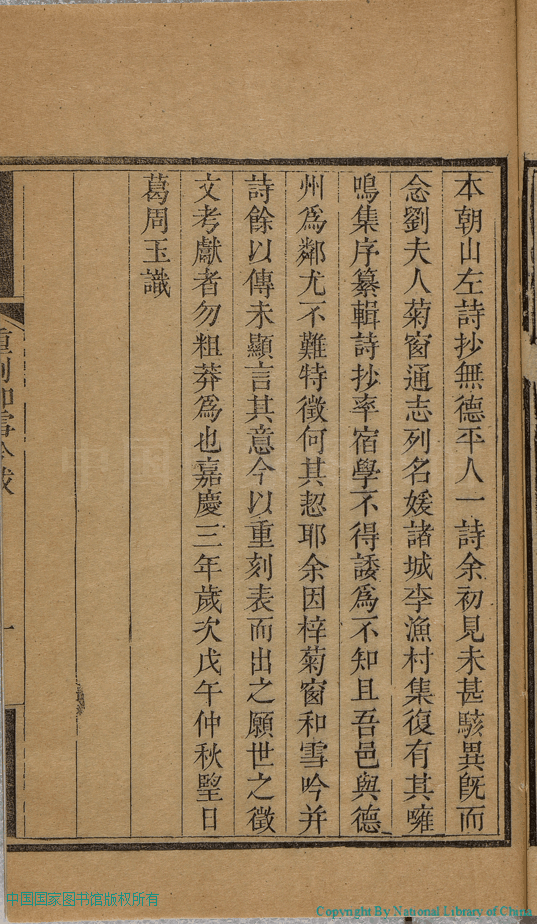 本朝山左詩抄無德平人一詩余初見未甚駭異旣而
念劉夫人菊窗通志列名媛諸城李漁村集復有其噰
鳴集序纂輯詩抄率宿學不得諉爲不知且吾邑與德
州爲鄰尤不難特徵何其恝耶余因梓菊窗和雪吟并
詩餘以傳未顯言其意今以重刻表而出之願世之徵
文考獻者勿粗莽爲也嘉慶三年歲次戊午仲秋朢日
葛周玉識
重刻和雪吟跋
一
中国国家图书馆版权所有
Copyright By National Library of China